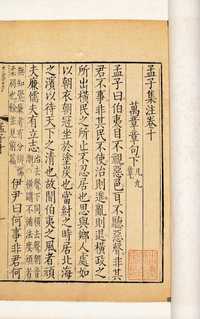 孟子集注卷十
萬章章句下 凡九章
孟子曰伯夷目不視惡色耳不聽惡聲非其
君不事非其民不使治則進亂則退橫政之
所出橫民之所止不忍居也思與鄉人處如
以朝衣朝冠坐於塗炭也當紂之時居北海
之濱以待天下之清也故聞伯夷之風者頑
夫廉懦夫有立志
伊尹曰何事非君何